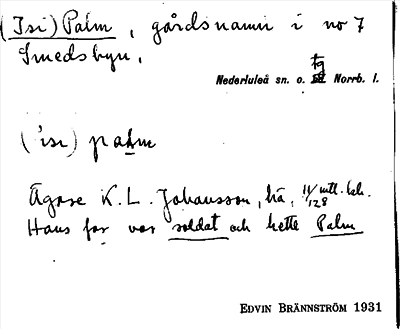 (Isi) Palm, gårdsnamn i no 7
Smedsbyn.
Nederluleå sn. o. tg Norrb. l.
('isi) palm
Ägare K. L. Johansson,
Hans far var soldat och hette Palm
EDVIN BRÄNNSTRÖM 1931